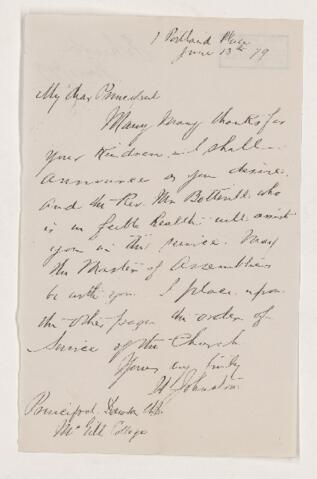 1 Portland Place
June 13th 79
My dear Principal
Many many thanks for
your kindness. I shall
announce as you desire.
and the Rev. Mr Botterill who
is in feeble health will assist
you in the service. May
the Master of Assemblies
be with you. I place upon
the other page the order of
Service of the Church
Yours very truly
H Johnston
Principal Dawson
McGill College